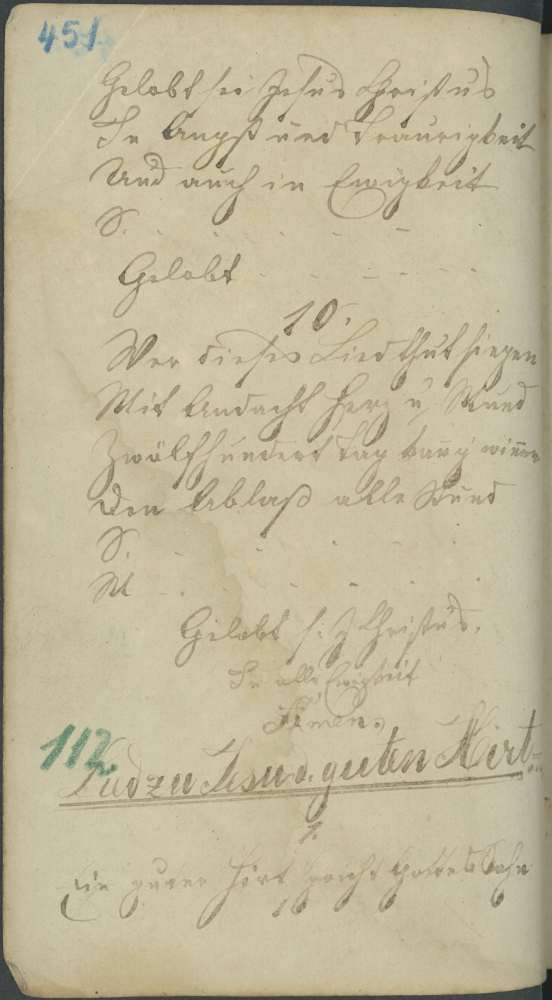 451
Gelobt sei Jesus Christus
In Angst und Traurigkeit
Und auch in Ewigkeit
S. . . . -
Gelobt - - - -
10.
Wer dieses Lied thut singen
Mit Andacht Herz u. Mund
Zwölfhundert Tag kann
Den Ablaß alle Stund
S. - . . .
M - . . . .
Gelobt s: J Christus,
In alle Ewigkeit
Amen.
112
Lied zu Jesu d. guten Hirt
1.
Ein guter Hirt Gottes Sohn